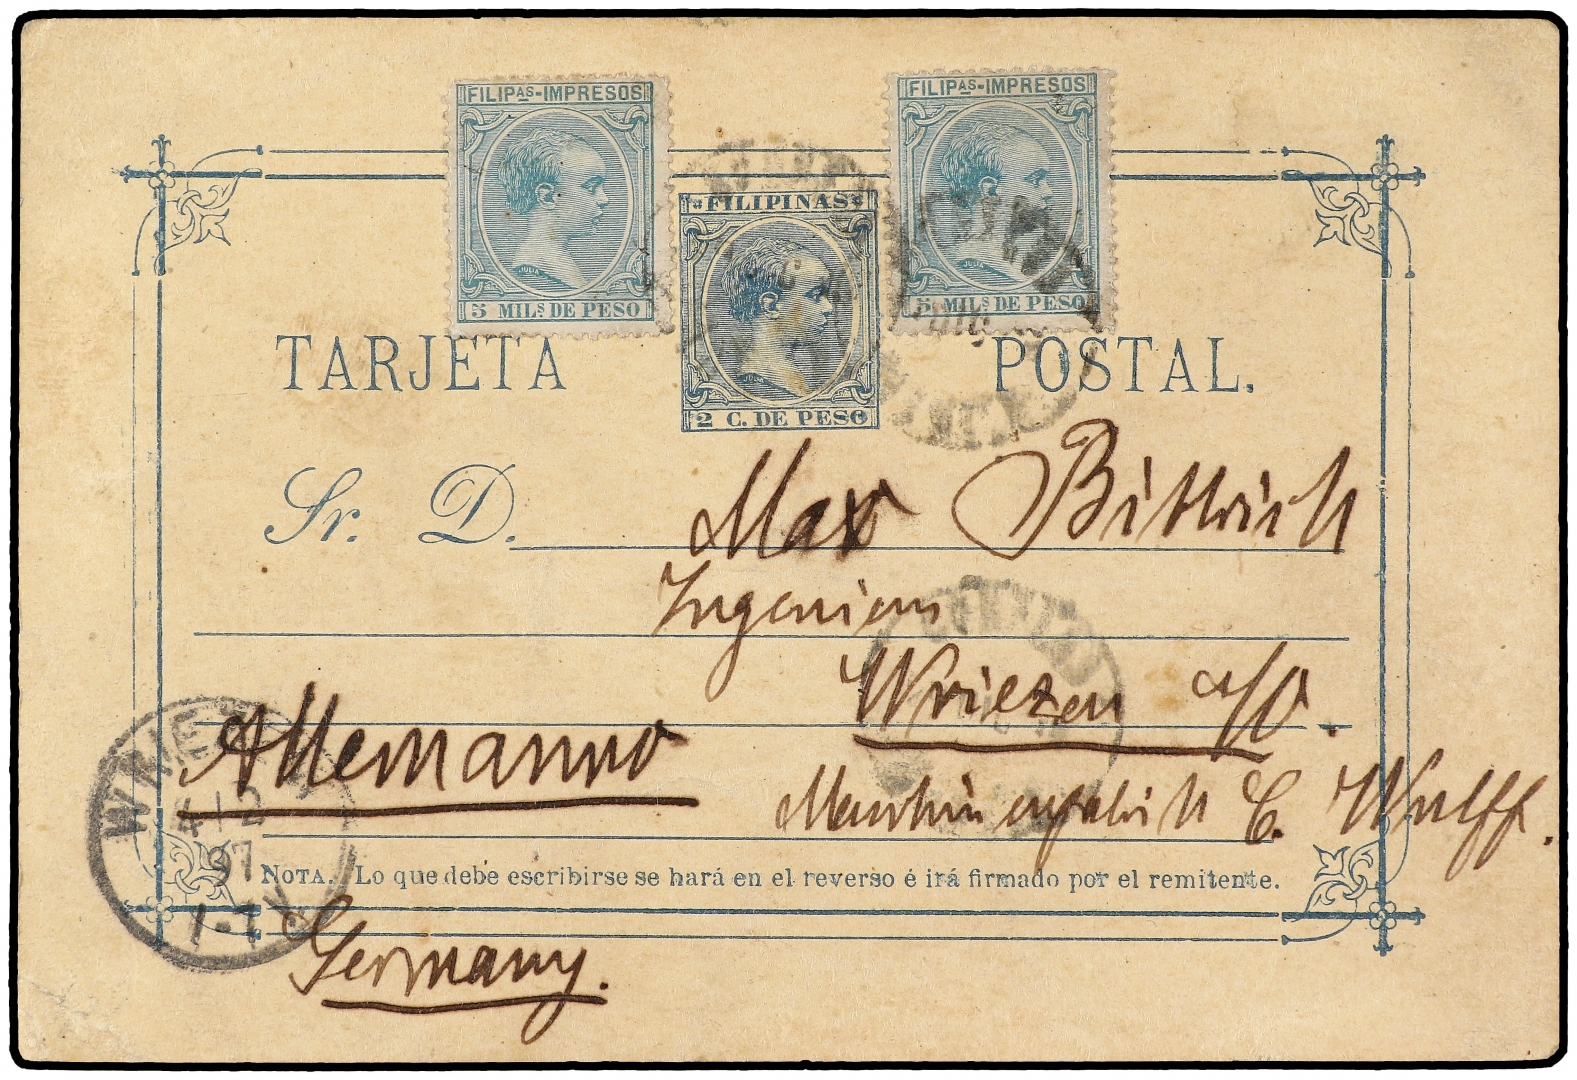 FILIPAS-IMPRESOS
5 MILS DE PESO
FILIPINAS
2 C. DE PESO
FILIPAS-IMPRESOS
5 MILS DE PESO
TARJETA POSTAL.
Sr. D. Max Bittrich
Ingenieur
Wriezen a/O.
Allemanno
Maschinenfabrik C. Wulff.
NOTA. Lo que debe escribirse se hará en el reverso é irá firmado por el remitente.
Germany.
WRIEZEN
97